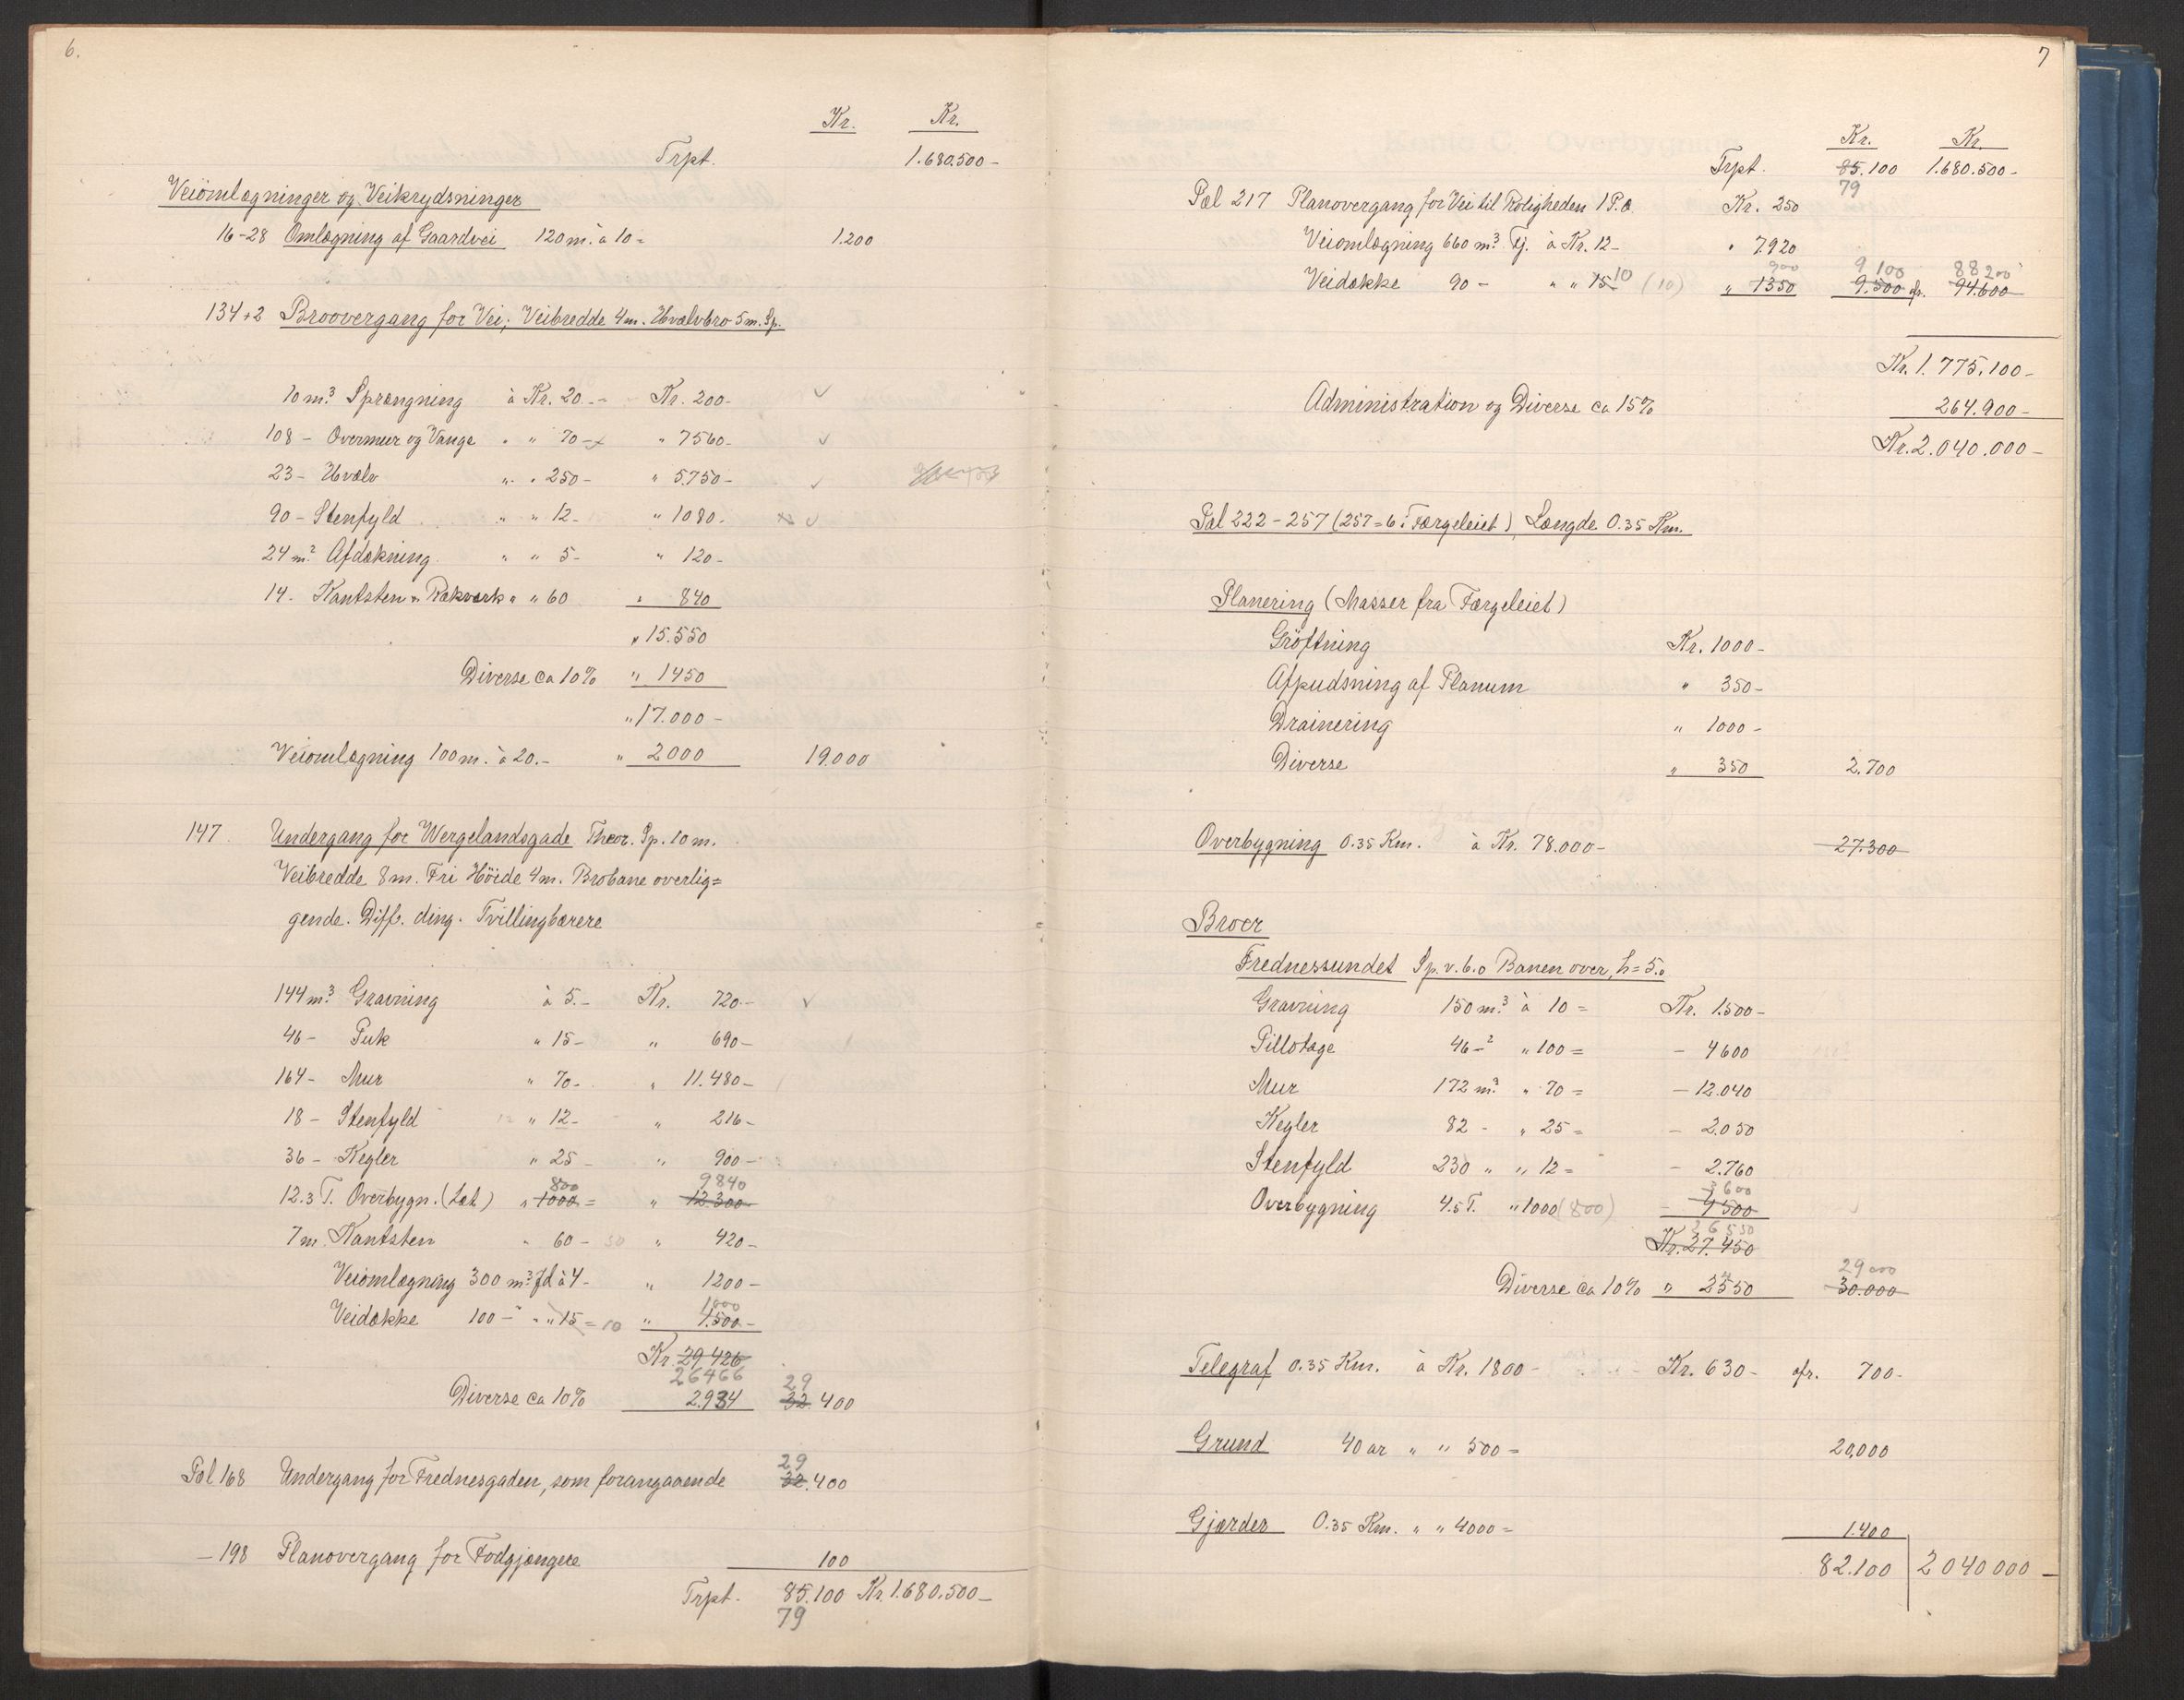 6.
Kr. Kr.
Trpt. 1.680.500-
Veiomlægninger og Veikrydsninger
16-28 Omlægning af Gaardvei 120 m. à 10= 1.200
134+2 Broovergang for Vei; Veibredde 4m. Hvælvbro 5m. Sp.
10 m.³ Sprængning à Kr. 20.- Kr. 200-
108 - Overmur og Vange " " 70- " 7560-
23 - Hvælv " " 250- " 5750-
90 - Stenfyld " " 12- " 1080-
24 m.² Afdækning " " 5- " 120-
14. Kantsten m. Rækværk " " 60 " 840
" 15.550
Diverse ca 10% " 1450
" 17.000-
Veiomlægning 100 m. à 20.- " 2000 19.000
147. Undergang for Wergelandsgade Theor. Sp. 10 m.
Veibredde 8 m. Fri Höide 4 m. Brobane overlig=
gende. Diff. ding. Tvillingbærere
144 m.³ Gravning à 5.- Kr. 720.-
46 - Puk " 15- " 690-
164 - Mur " 70- " 11.480-
18 - Stenfyld " 12- " 216-
36 - Kegler " 25- " 900-
800 9840
12.3 T. Overbygn. (Let) " 1000= " 12.300
7 m. Kantsten " 60- 50 " 420-
Veiomlægning 300 m.³ Jd à 4- " 1200-
1000
Veidække 100 - " " 15= 10 " 1.500-
Kr. 29.426
26466 29
Diverse ca 10% 2.934 32.400
29
Pæl 168 Undergang for Frednesgaden, som forangaaende 32.400
- 198 Planovergang for Fodgjængere 100
Trpt. 85.100 Kr. 1.680.500-
79
7
Kr. Kr.
Trpt. 85.100 1.680.500-
79
Pæl 217 Planovergang for Vei til Roligheden 1 P.æ. Kr. 250
Veiomlægning 660 m.³ Fj. à Kr. 12- " 7920
900 9 100 88200
Veidække 90 - " " 15 10 (10) " 1350 9.500 fr. 94.600
Kr. 1.775.100-
Administration og Diverse ca 15% 264.900-
Kr. 2.040.000-
Pæl 222-257 (257=6 i Færgeleiet), Længde 0.35 Km.
Planering (Masser fra Færgeleiet)
Gröftning Kr. 1000-
Afpudsning af Planum " 350-
Drainering " 1000-
Diverse " 350 2.700
Overbygning 0.35 Km. à Kr. 78.000- 27.300
Broer
Frednessundet Sp. v. 6.0 Banen over, h=5.0
Gravning 150 m.³ à 10= Kr. 1.500-
Pillotage 46 -² " 100= - 4600
Mur 172 m.³ " 70= - 12.040
Kegler 82 - " 25= - 2.050
Stenfyld 230 " " 12= - 2.760
3600
Overbygning 4.5 T. " 1000 (800) - 4500
26550
Kr. 27.450
29000
Diverse ca 10% " 2550 30.000
Telegraf 0.35 Km. à Kr. 1800- Kr. 630- fr. 700-
Grund 40 ar " " 500= 20,000
Gjærder 0.35 Km. " " 4000= 1.400
82.100 2 040 000-